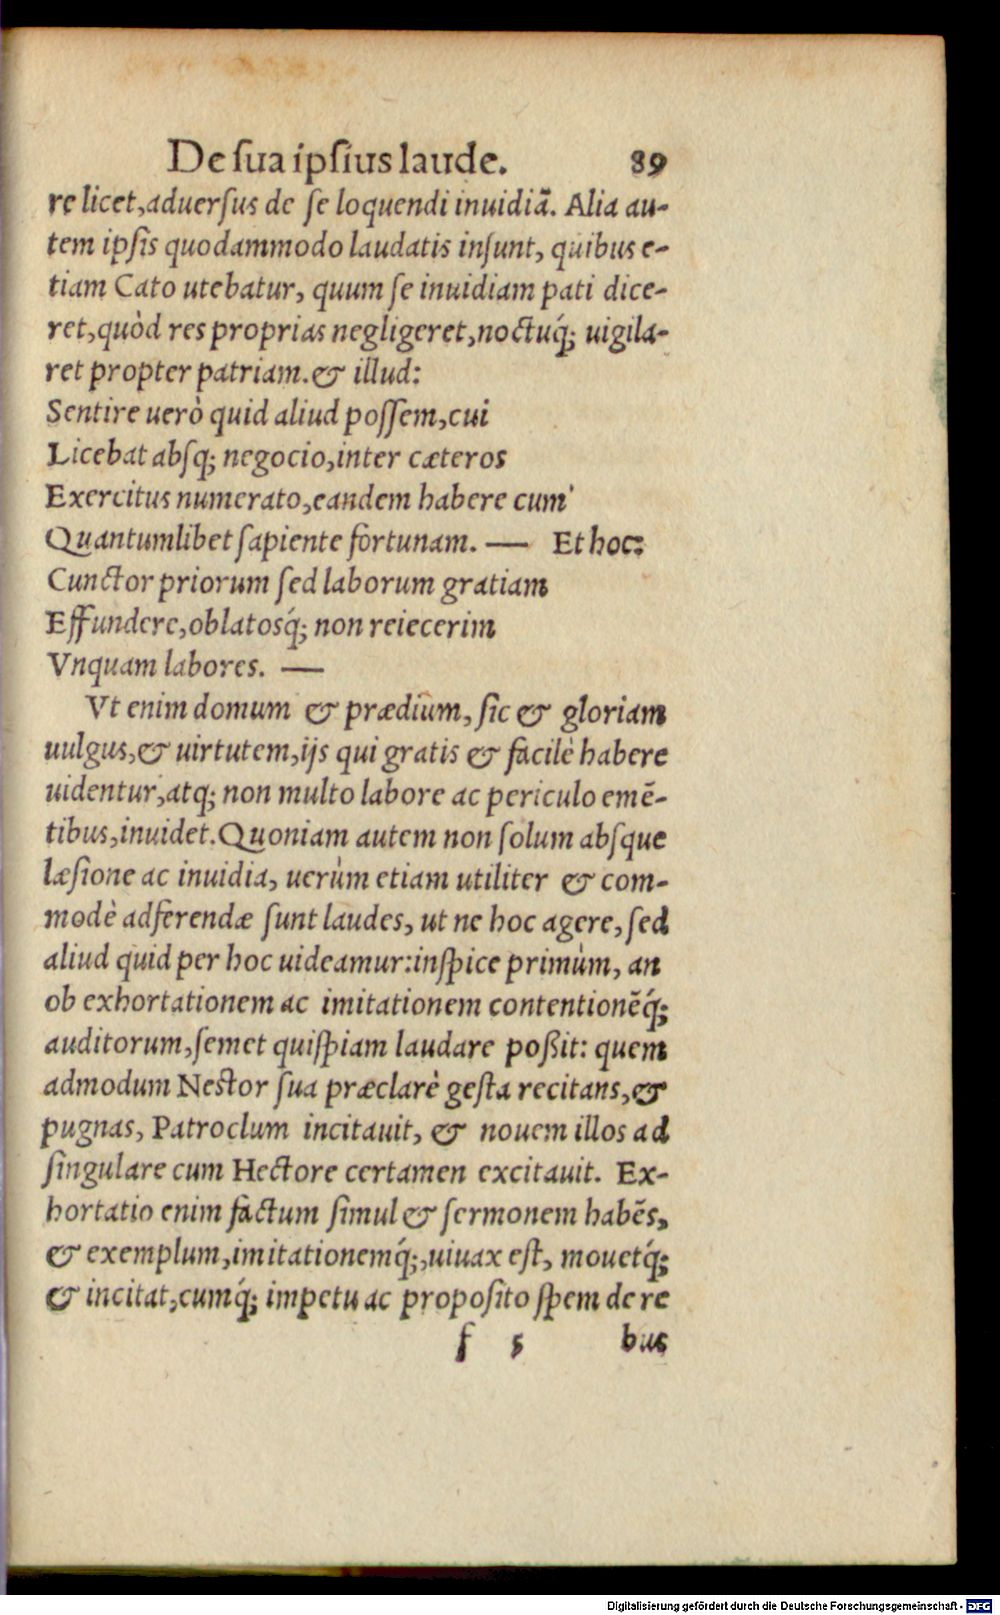 De ſua ipſius laude. 89
re licet, aduerſus de ſe loquendi inuidiã. Alia au-
tem ipſis quodammodo laudatis inſunt, quibus e-
tiam Cato utebatur, quum ſe inuidiam pati dice-
ret, quòd res proprias negligeret, noctuq́; uigila-
ret propter patriam. & illud:
Sentire uerò quid aliud poſſem, cui
Licebat abſq; negocio, inter cæteros
Exercitus numerato, eandem habere cum
Quantumlibet ſapiente fortunam. — Et hoc:
Cunctor priorum ſed laborum gratiam
Effundere, oblatosq́; non reiecerim
Vnquam labores. —
Vt enim domum & prædium, ſic & gloriam
uulgus, & uirtutem, ijs qui gratis & facilè habere
uidentur, atq; non multo labore ac periculo emẽ-
tibus, inuidet. Quoniam autem non ſolum abſque
læſione ac inuidia, uerùm etiam utiliter & com-
modè adferendæ ſunt laudes, ut ne hoc agere, ſed
aliud quid per hoc uideamur: inſpice primùm, an
ob exhortationem ac imitationem contentionẽq́;
auditorum, ſemet quiſpiam laudare poßit: quem
admodum Neſtor ſua præclarè geſta recitans, &
pugnas, Patroclum incitauit, & nouem illos ad
ſingulare cum Hectore certamen excitauit. Ex-
hortatio enim factum ſimul & ſermonem habẽs,
& exemplum, imitationemq́;, uiuax eſt, mouetq́;
& incitat, cumq́; impetu ac propoſito ſpem de re
f 5 bus
Digitalisierung gefördert durch die Deutsche Forschungsgemeinschaft - DFG